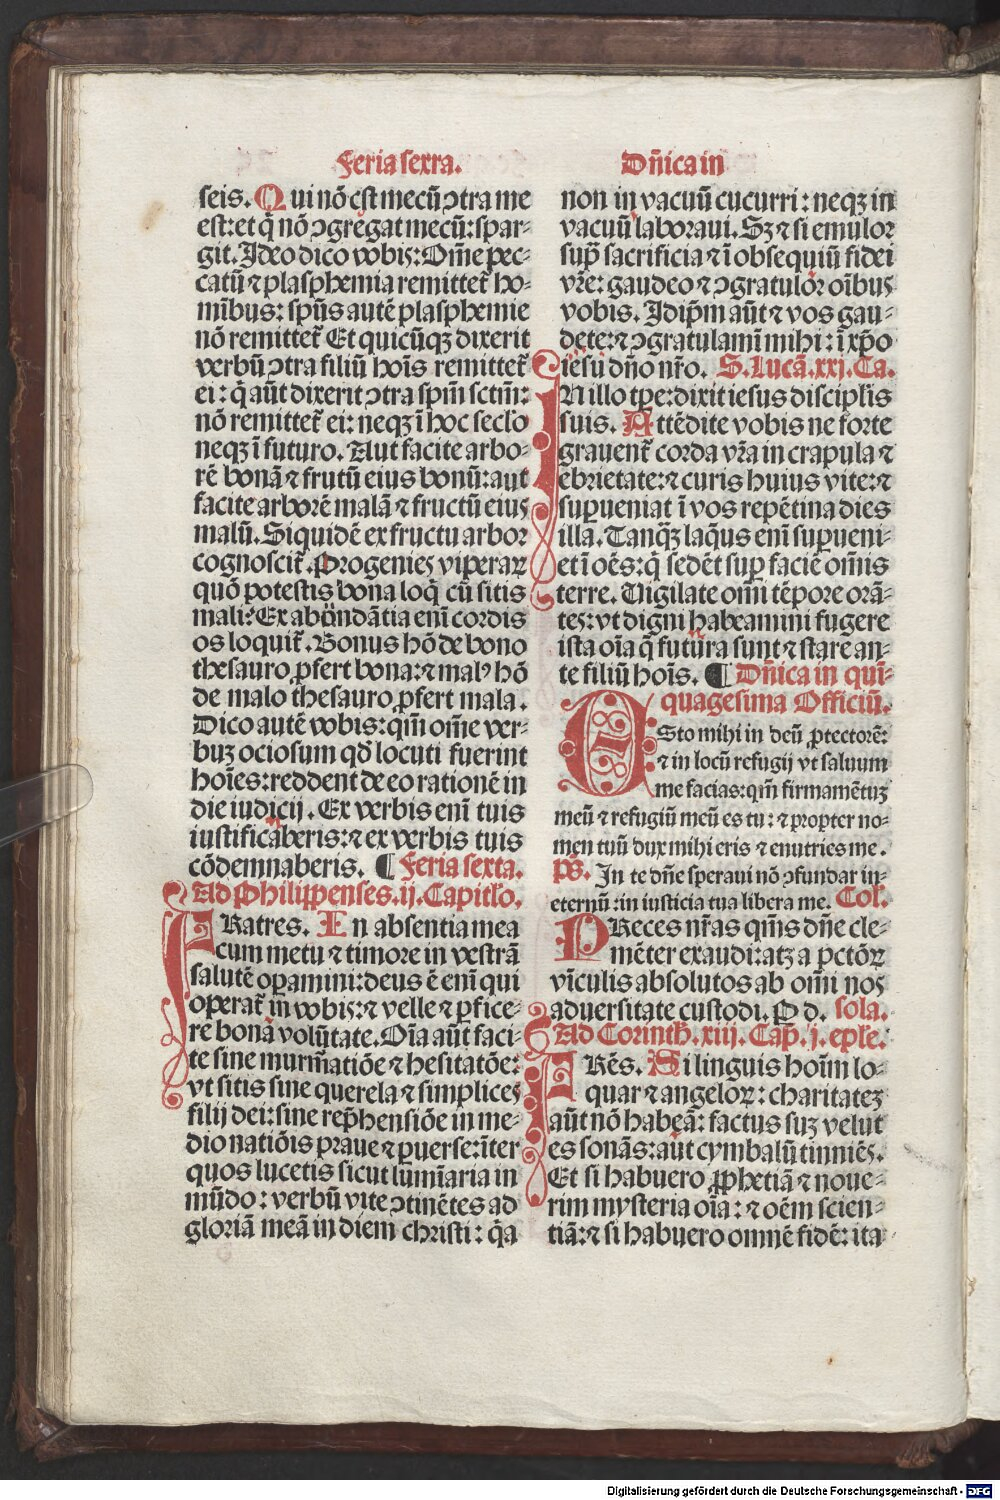 Feria sexta.
seis. Qui nō est mecū ↄtra me
est: et q̇ nō ↄgregat mecū: spar-
git. Ideo dico vobis: Om̄e pec-
catū ⁊ plasphemia remittet᷑ ho-
mībus: spūs autē plasphemie
nō remittet᷑ Et quicūqꝫ dixerit
verbū ↄtra filiū hoīs remittet᷑
ei: q̇ aūt dixerit ↄtra spm̄ sctm̄:
nō remittet᷑ ei: neqꝫ ī hoc seclo
neqꝫ ī futuro. Aut facite arbo-
rē bonā ⁊ frutū eius bonū: aut
facite arborē malā ⁊ fructū eius
malū. Siquidē ex fructu arbor
cognoscit᷑. Progenies viperaꝝ
quō potestis bona loq̇ cū sitis
mali? Ex abōndātia enī cordis
os loquit᷑. Bonus hō de bono
thesauro ꝓfert bona: ⁊ malꝰ hō
de malo thesauro ꝓfert mala.
Dico autē vobis: qm̄ om̄e ver-
buꝫ ociosum qd̄ locuti fuerint
hoīes: reddent de eo rationē in
die iudicij. Ex verbis enī tuis
iustificaberis: ⁊ ex verbis tuis
cōdemnaberis. ¶ Feria sexta.
Ad Philippenses .ij. Capitlo.
FRatres. In absentia mea
cum metu ⁊ timore in vestrā
salutē oꝑamini: deus ē enī qui
operat᷑ in vobis: ⁊ velle ⁊ ꝑfice-
re bona volūtate. Oīa aūt faci-
te sine murm̄atiōe ⁊ hesitatōe:
vt sitis sine querela ⁊ simplices
filij dei: sine rep̄hensiōe in me-
dio natiōis praue ⁊ ꝑuerse: īter
quos lucetis sicut lumīaria in
mūdo: verbū vite ↄtinētes ad
gloriā meā in diem christi: q̇a
Dn̄ica in
non in vacuū cucurri: neqꝫ in
vacuū laboraui. Sꝫ ⁊ si emulor
suꝑ sacrificia ⁊ ī obsequiū fidei
vr̄e: gaudeo ⁊ ↄgratulor oībus
vobis. Idip̄m aūt ⁊ vos gau-
dete: ⁊ ↄgratulami mihi: ī xp̄o
iesu dn̄o nr̄o. S. Lucā .xxj. Ca.
IN illo tꝑe: dixit iesus disciplis
suis. Attēdite vobis ne forte
grauent᷑ corda vr̄a in crapula ⁊
ebrietate: ⁊ curis huius vite: ⁊
superueniat ī vos repētina dies
illa. Tanqꝫ laq̄us enī suꝑueni-
et ī oēs: q̇ sedēt suꝑ faciē om̄is
terre. Uigilate omī tēpore orā-
tes: vt digni habeamini fugere
ista oīa q̄ futura sunt ⁊ stare an-
te filiū hoīs. ¶ Dn̄ica in quī-
quagesima Officiū.
ESto mihi in deū ꝓtectorē:
⁊ in locū refugij vt saluum
me facias: qm̄ firmamētuꝫ
meū ⁊ refugiū meū es tu: ⁊ propter no-
men tuū dux mihi eris ⁊ enutries me.
Ps̄. In te dn̄e speraui nō ↄfundar in-
eternū: in iusticia tua libera me. Col.
PReces nr̄as qm̄s dn̄e cle-
mēter exaudi: atqꝫ a pctōꝝ
vīculis absolutos ab omī nos
aduersitate custodi. P d. sola.
Ad Corinth. xiij. Cap. j. eple.
FRēs. Si linguis hoīm lo-
quar ⁊ angeloꝝ: charitateꝫ
aūt nō habeā: factus suꝫ velut
es sonās: aut cymbalū tinniēs.
Et si habuero ꝓphetiā ⁊ noue-
rim mysteria oīa: ⁊ oēm scien-
tiā: ⁊ si habuero omnē fidē: ita
Digitalisierung gefördert durch die Deutsche Forschungsgemeinschaft - DFG